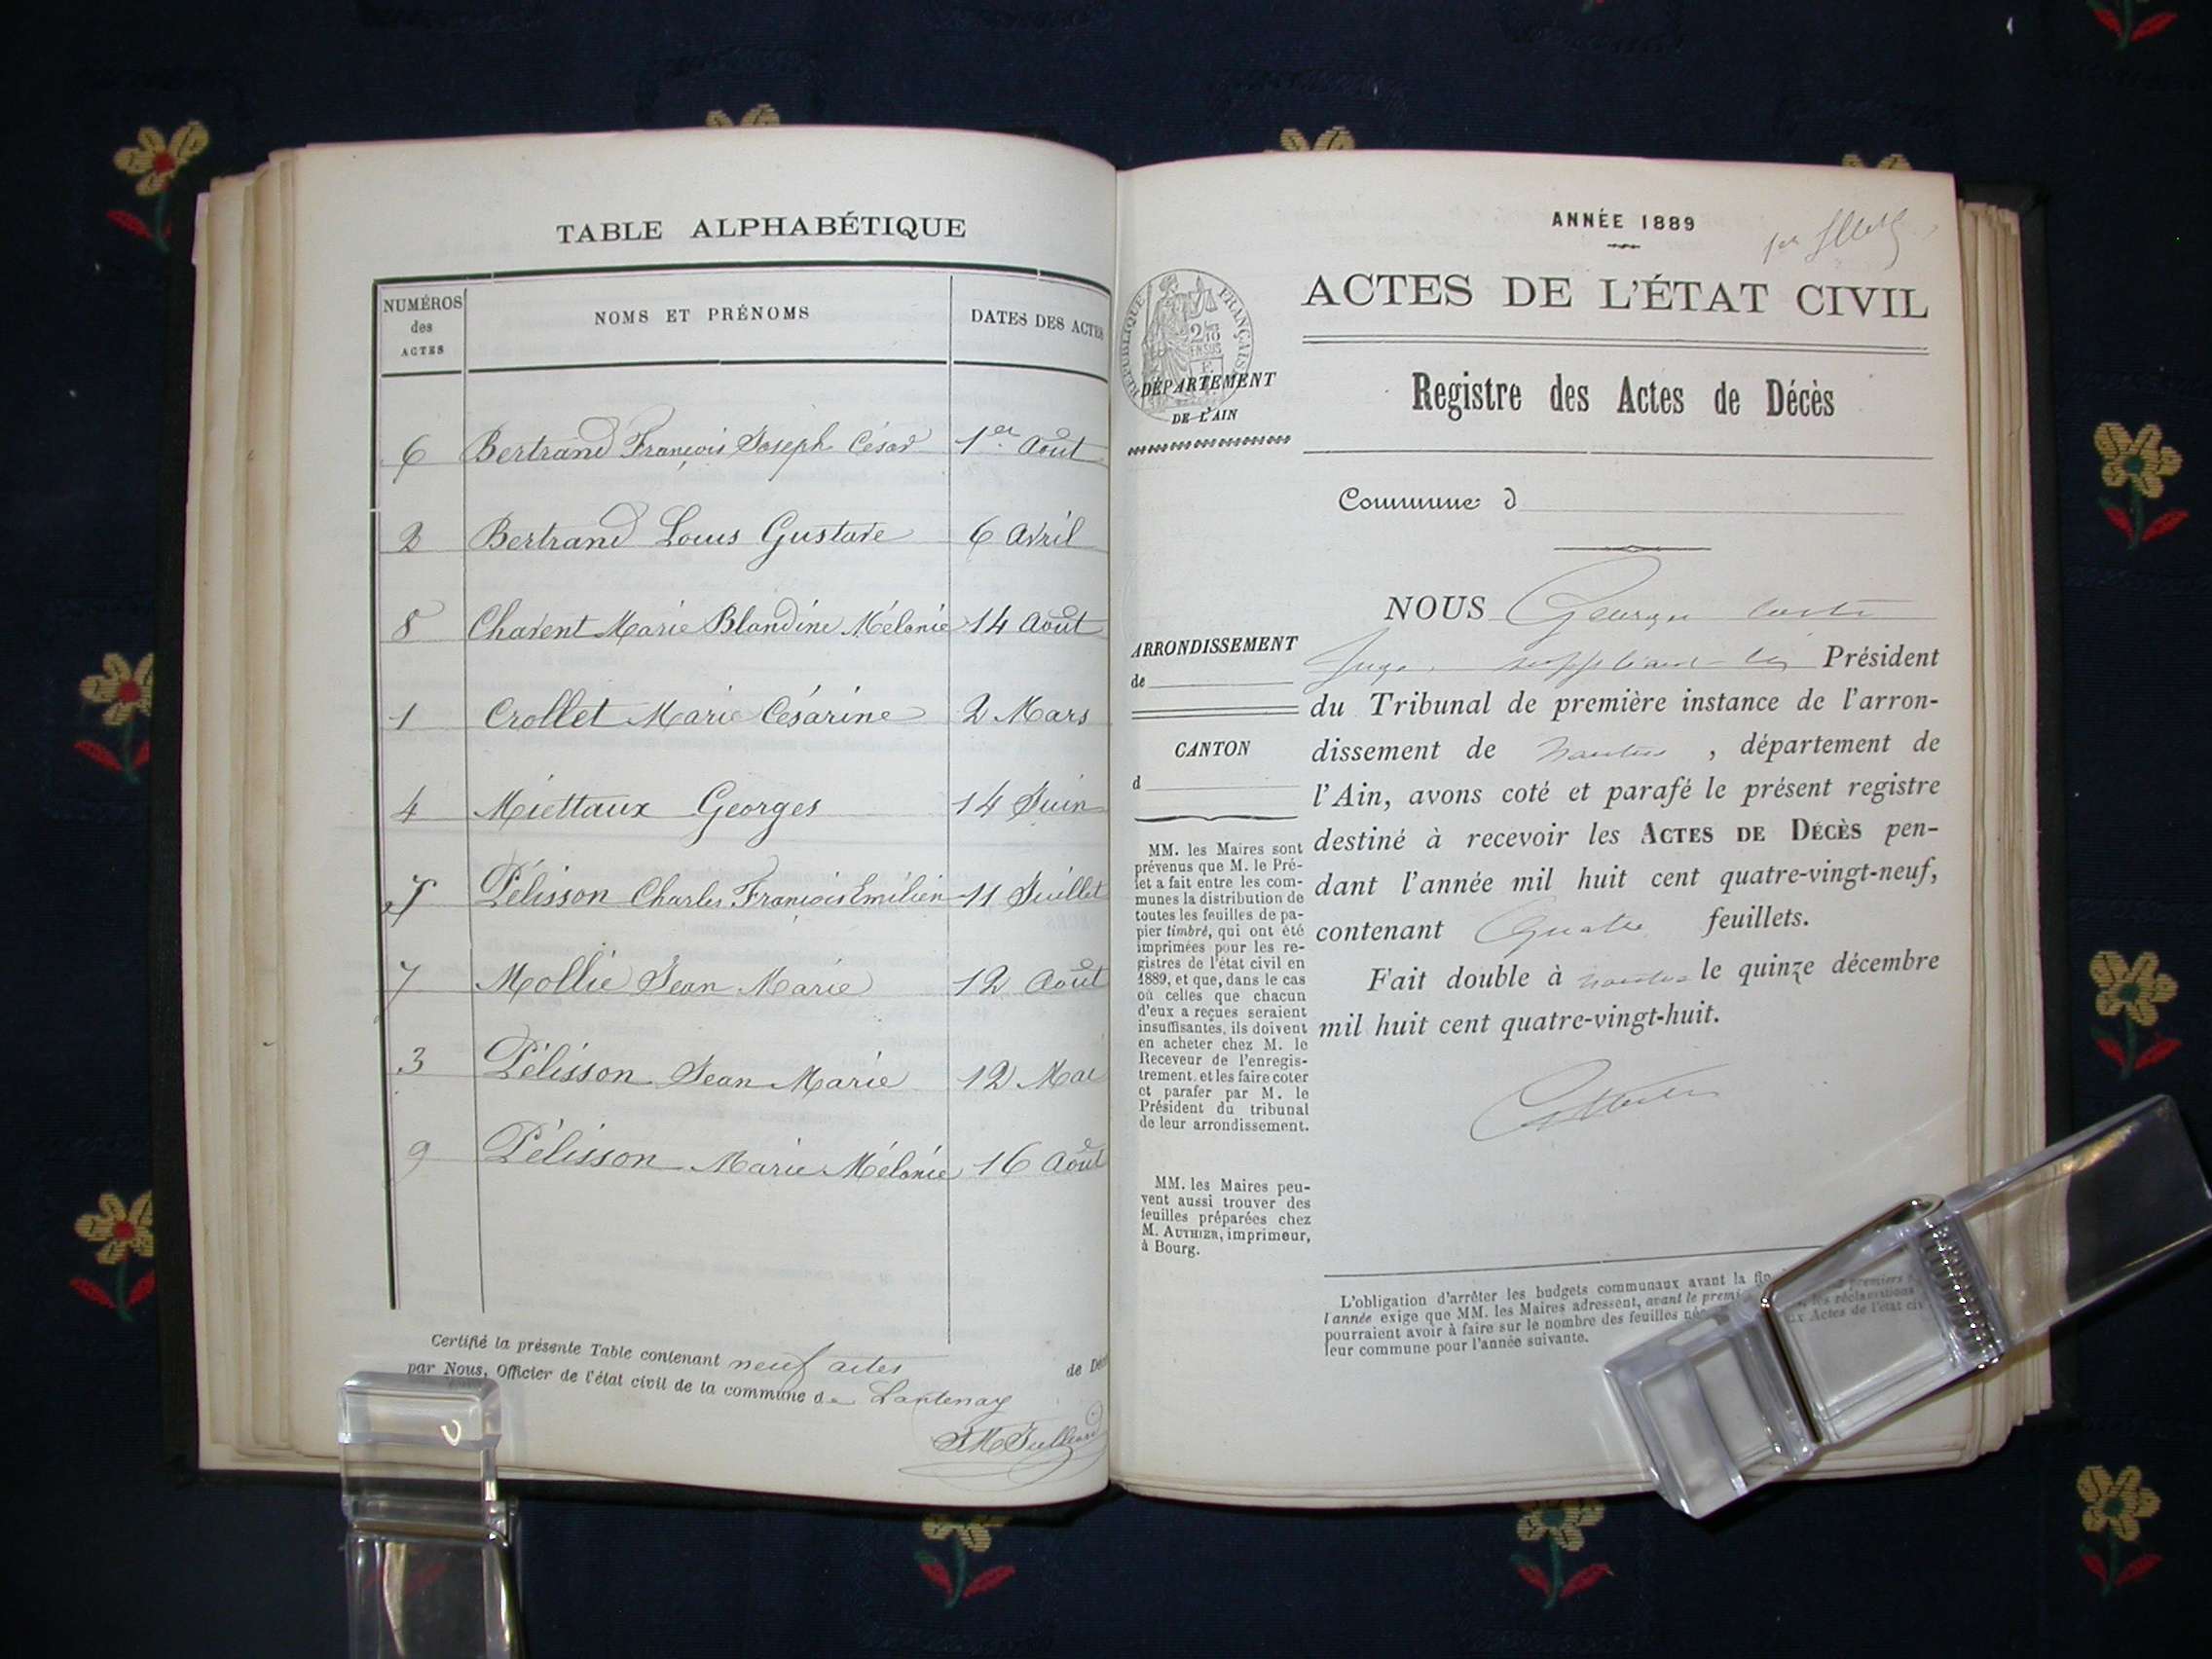 TABLE ALPHABÉTIQUE
NUMÉROS
des
ACTES
NOMS ET PRÉNOMS
DATES DES ACTES
6 Bertrand François Joseph César 1er Août
2 Bertrand Louis Gustave 6 Avril
8 Charent Marie Blandine Mélanie 14 Août
1 Crollet Marie Césarine 2 Mars
4 Miettaux Georges 14 Juin
5 Pélisson Charles François Emilien 11 Juillet
7 Mollie Jean Marie 12 Août
3 Pélisson Jean Marie 12 Mai
9 Pélisson Marie Mélanie 16 Août
Certifié la présente Table contenant neuf actes de Décè
par Nous, Officier de l'état civil de la commune de Lantenay
ANNÉE 1889
ACTES DE L'ÉTAT CIVIL
RÉPUBLIQUE FRANÇAISE
2/10
EN SUS
DÉPARTEMENT
DE L'AIN
Registre des Actes de Décès
Commune d
ARRONDISSEMENT
de
CANTON
d
MM. les Maires sont
prévenus que M. le Pré-
fet a fait entre les com-
munes la distribution de
toutes les feuilles de pa-
pier timbré, qui ont été
imprimées pour les re-
gistres de l'état civil en
1889, et que, dans le cas
où celles que chacun
d'eux a reçues seraient
insuffisantes, ils doivent
en acheter chez M. le
Receveur de l'enregis-
trement et les faire coter
et parafer par M. le
Président du tribunal
de leur arrondissement.
MM. les Maires peu-
vent aussi trouver des
feuilles préparées chez
M. AUTHIER, imprimeur,
à Bourg.
NOUS Georges
Juge suppléant Président
du Tribunal de première instance de l'arron-
dissement de Nantua, département de
l'Ain, avons coté et parafé le présent registre
destiné à recevoir les ACTES DE DÉCÈS pen-
dant l'année mil huit cent quatre-vingt-neuf,
contenant Quatre feuillets.
Fait double à Nantua le quinze décembre
mil huit cent quatre-vingt-huit.
L'obligation d'arrêter les budgets communaux avant la fin premiers
l'année exige que MM. les Maires adressent, avant le premi les réclamations
pourraient avoir à faire sur le nombre des feuilles néc x Actes de l'état civ
leur commune pour l'année suivante.